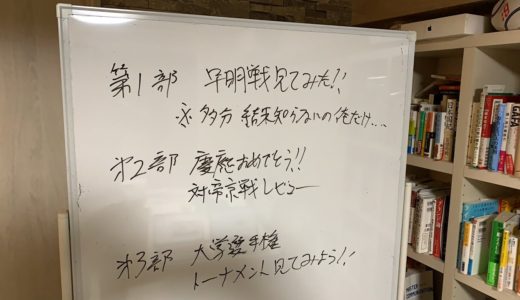 第1部 早明戦見てみた!!
※多分結果知らないの俺だけ...
第2部 慶應おめでとう!!
対帝京戦レビュー
第3部 大学選手権
トーナメント見てみよう!!